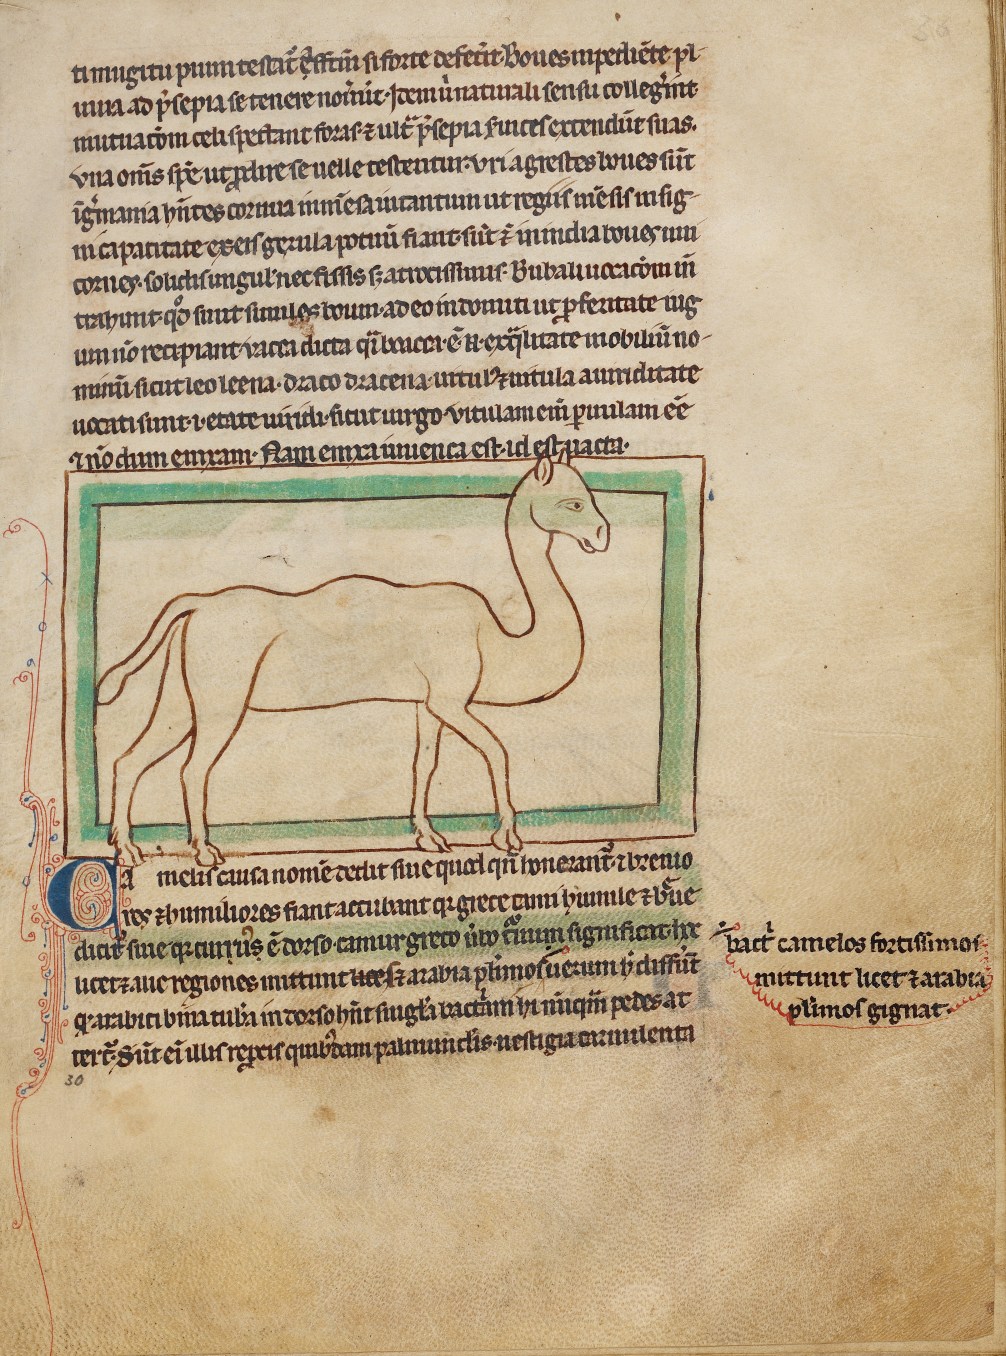 ti mugitu pium testat̄ eff̄tm̄ si forte defec̄it. Boues inpediēte pl-
uuia ad p̄sepia se tenere nōīnt. Item ū naturali sensu collegīnt
mutuac̄om celi spectant foras ⁊ ult̄ p̄sepia ceruices extendūt suas.
vna om̄s spē ut ꝓdire se uelle testentur. vri agrestes boues sūt
ī ḡmania hn̄tes cornua inmēsa intantum ut regiis mēsis insig-
ni capacitate ex eis gerula potuū fiant. sūt ⁊ in india boues uni
cornes. solidis ungul' nec fissis s; atrocissimis. Bubali uocac̄om in
trahunt. qd̄ sint similes boum. adeo indomiti ut p̱ feritate iug
um nō recipiant. vacca dicta qī boacca. ē .n. ex q̄litate mobiliū no-
minū sicut leo leena. draco dracena. uitul' ⁊ uitula a uiriditate
uocati sunt. i. etate uiridi. sicut uirgo. vitulam em̄ paruulam eē
⁊ nō dum enixam. Nam enixa iuuenca est. id est uacca.
Ca melis causa nomē dedit siue quod qn̄ honerant̄ ⁊ breuio
res ⁊ humiliores fiant accubant qr grece cam hūmile ⁊ br̄ue
dicit̄ siue qr curuus ē dorso. camur greco ūbo curuum significat. hos
licet ⁊ alie regiones mittunt licet s; ⁊ arabia pl̄imos uerum h̄ diffūt
qr arabici bina tub̄a in dorso hn̄t singl̄a bact̄ani hī nūqm̄ pedes at
terūt. Sūt ei illis reꝓcis quib;dam pulmunclis. uestigia carnulenta
bact̄ camelos fortissimos
mittunt licet ⁊ arabia
pl̄imos gignat.
30